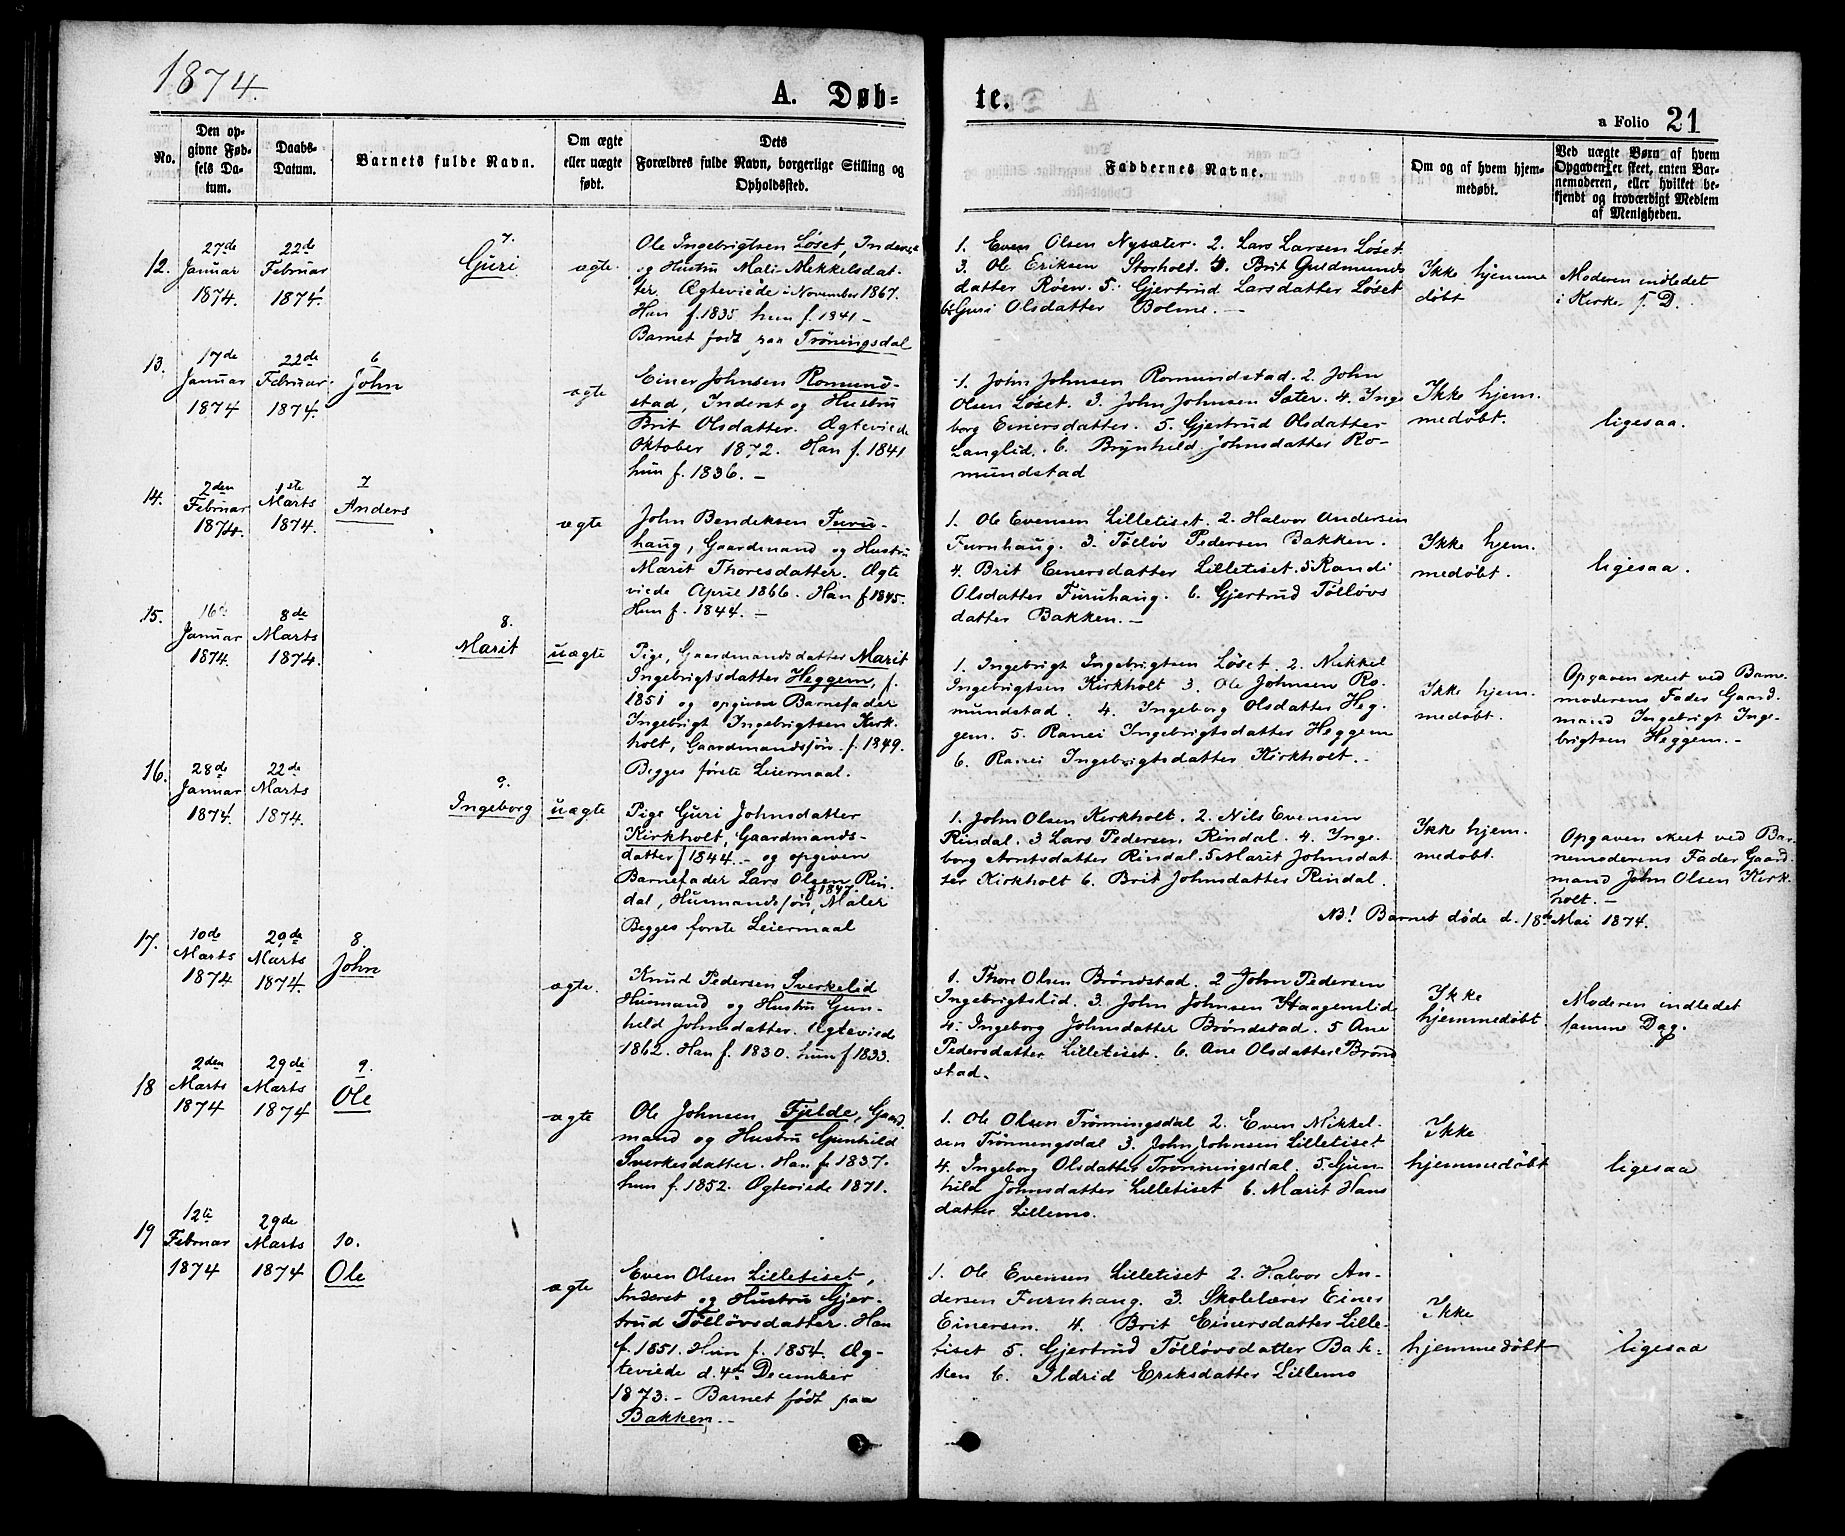 1874.
A. Døb=
te.
a Folio 21
No.
Den op-
givne Fød-
sels Da-
tum.
Daabs-
Datum.
Barnets fulde Navn.
Om ægte
eller uægte
født.
Dets
Forældres fulde Navn, borgerlige Stilling og
Opholdssted.
Faddernes Navne.
Om og af hvem hjem-
medøbt.
Ved uægte Børn af hvem
Opgaven er skeet, enten Bar-
nemoderen, eller hvilket be-
kjendt og troværdigt Medlem
af Menigheden.
12.
27de
Januar
1874.
22de
Februar
1874.
7.
Guri
ægte.
Ole Ingebrigtsen Løset, Inderst
og Hustru Mali Mekkelsdat-
ter. Ægteviede i November 1867.
Han f. 1835 hun f. 1841 -
Barnet født paa Trøningsdal
1. Even Olsen Nysæter. 2. Lars Larsen Løset
3. Ole Eriksen Storholt. 4. Brit Guldmunds
datter Røen. 5. Gjertrud Larsdatter Løset
6. Guri Olsdatter Bolme. -
Ikke hjemme
døbt
Moderen indledet
i Kirke s. D.
13.
17de
Januar
1874
22de
Februar
1874.
6
John
ægte
Einer Johnsen Romund-
stad, Inderst og Hustru
Brit Olsdatter. Ægteviede
Oktober 1872. Han f. 1841
hun f. 1836. -
1. John Johnsen Romundstad. 2. John
Olsen Løset. 3. John Johnsen Sæter. 4. Inge
borg Einersdatter. 5. Gjertrud Olsdatter
Langlid. 6. Brynhild Johnsdatter Ro-
mundstad
Ikke hjem.
medøbt.
ligesaa.
14.
2den
Februar
1874.
1ste
Marts
1874.
7
Anders
ægte
John Bendiksen Furu-
haug, Gaardmand og Hustru
Marit Thoresdatter. Ægte
viede April 1866. Han f 1845.
Hun f. 1844. -
1. Ole Evensen Lilletiset. 2. Halvor Andersen
Furuhaug. 3. Tølløv Pedersen Bakken.
4. Brit Einersdatter Lilletiset. 5 Randi
Olsdatter Furuhaug. 6. Gjertrud Tølløvs
datter Bakken. -
Ikke hjem.
medøbt.
ligesaa.
15.
16de
Januar
1874.
8de
Marts
1874.
8.
Marit
uægte
Pige, Gaardmandsdatter Marit
Ingebrigtsdatter Heggem, f.
1851 og opgiven Barnefader
Ingebrigt Ingebrigtsen Kirk-
holt, Gaardmandssøn. f. 1849.
Begges første Leiermaal.
1. Ingebrigt Ingebrigtsen Løset. 2. Mikkel
Ingebrigtsen Kirkholt 3. Ole Johnsen Ro-
mundstad. 4. Ingeborg Olsdatter Heg-
gem. 5. Ranei Ingebrigtsdatter Heggem
6. Ranei Ingebrigtsdatter Kirkholt. -
Ikke hjem.
medøbt.
Opgaven skeet ved Barne
moderens Fader Gaard
mand Ingebrigt Inge-
brigtsen Heggem. -
16.
28de
Januar
1874.
22de
Marts
1874.
9.
Ingeborg
uægte
Pige Guri Johnsdatter
Kirkholt, Gaardmands-
datter f 1844. - og opgiven
Barnefader Lars Olsen Rin-
dal, Husmandssøn, f 1847. Maler
Begges første Leiermaal
1. John Olsen Kirkholt. 2. Nils Evensen
Rindal. 3 Lars Pedersen Rindal. 4. Inge
borg Arntsdatter Rindal. 5 Marit Johnsdat
ter Kirkholt 6. Brit Johnsdatter Rindal.
Ikke hjem.
medøbt.
Opgaven skeet ved Bar-
nemoderens Fader Gaard
mand John Olsen Kirk-
holt. -
NB! Barnet døde d. 18de Mai 1874.
17.
10de
Marts
1874
29de
Marts
1874.
8.
John
ægte.
Knud Pedersen Sverkelid
Husmand og Hustru Gun-
hild Johnsdatter. Ægteviede
1862. Han f. 1830. hun f 1833.
1. Thore Olsen Brøndstad. 2 John Pedersen
Ingebrigtslid. 3. John Johnsen Staagemslid
4. Ingeborg Johnsdatter Brøndstad. 5 Ane
Pedersdatter Lilletiset. 6. Ane Olsdatter Brønd
stad.
Ikke
hjemmedøbt
Moderen indledet
samme Dag.
18
2den
Marts
1874
29de
Marts
1874
9.
Ole
ægte
Ole Johnsen Fjelde, Gaard
mand og Hustru Gunhild
Sverkesdatter. Han f. 1837.
hun f. 1852. Ægteviede 1871.
1. Ole Olsen Trønningsdal 2. Even Mikkel-
sen Trønningsdal 3. John Johnsen Lilletiset
4. Ingeborg Olsdatter Trønningsdal. 5. Gun-
hild Johnsdatter Lilletiset 6. Marit Hans
datter Lillemo.
Ikke
hjemmedøbt
ligesaa
19
12te
Februar
1874
29de
Marts
1874
10.
Ole
ægte
Even Olsen Lilletiset,
Inderst og Hustru Gjer-
trud Tølløvsdatter. Han
f. 1851. Hun f. 1854. Æg-
teviede d. 4de December
1873. - Barnet født paa
Bakken. -
1. Ole Evensen Lilletiset 2. Halvor An-
dersen Furuhaug. 3. Skolelærer Einer
Einersen. 4. Brit Einersdatter Lille-
tiset 5. Gjertrud Tølløvsdatter Bak-
ken 6. Ildrid Eriksdatter Lillemo
Ikke
hjemmedøbt
ligesaa